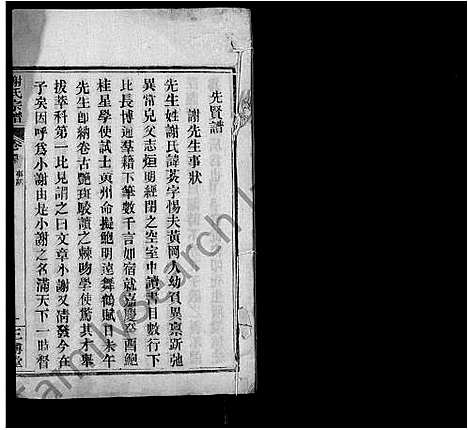 先賢譜
謝先生事狀
先生姓謝氏諱葵字惕夫黃岡人幼負異稟跅弛
異常兒父志烜明經閉之空室中讀書目數行下
比長博通羣籍下筆數千言如宿就嘉慶癸酉鮑
桂星學使試士黃州命擬鮑明遠舞鶴賦日未午
先生即納卷古艷班駮讀之棘吻學使驚其才舉
拔萃科第一比見謂之曰文章小謝又清發今在
子矣因呼為小謝由是小謝之名滿天下一時督
謝氏宗譜
卷
事狀
一
三博堂
FamilySearch